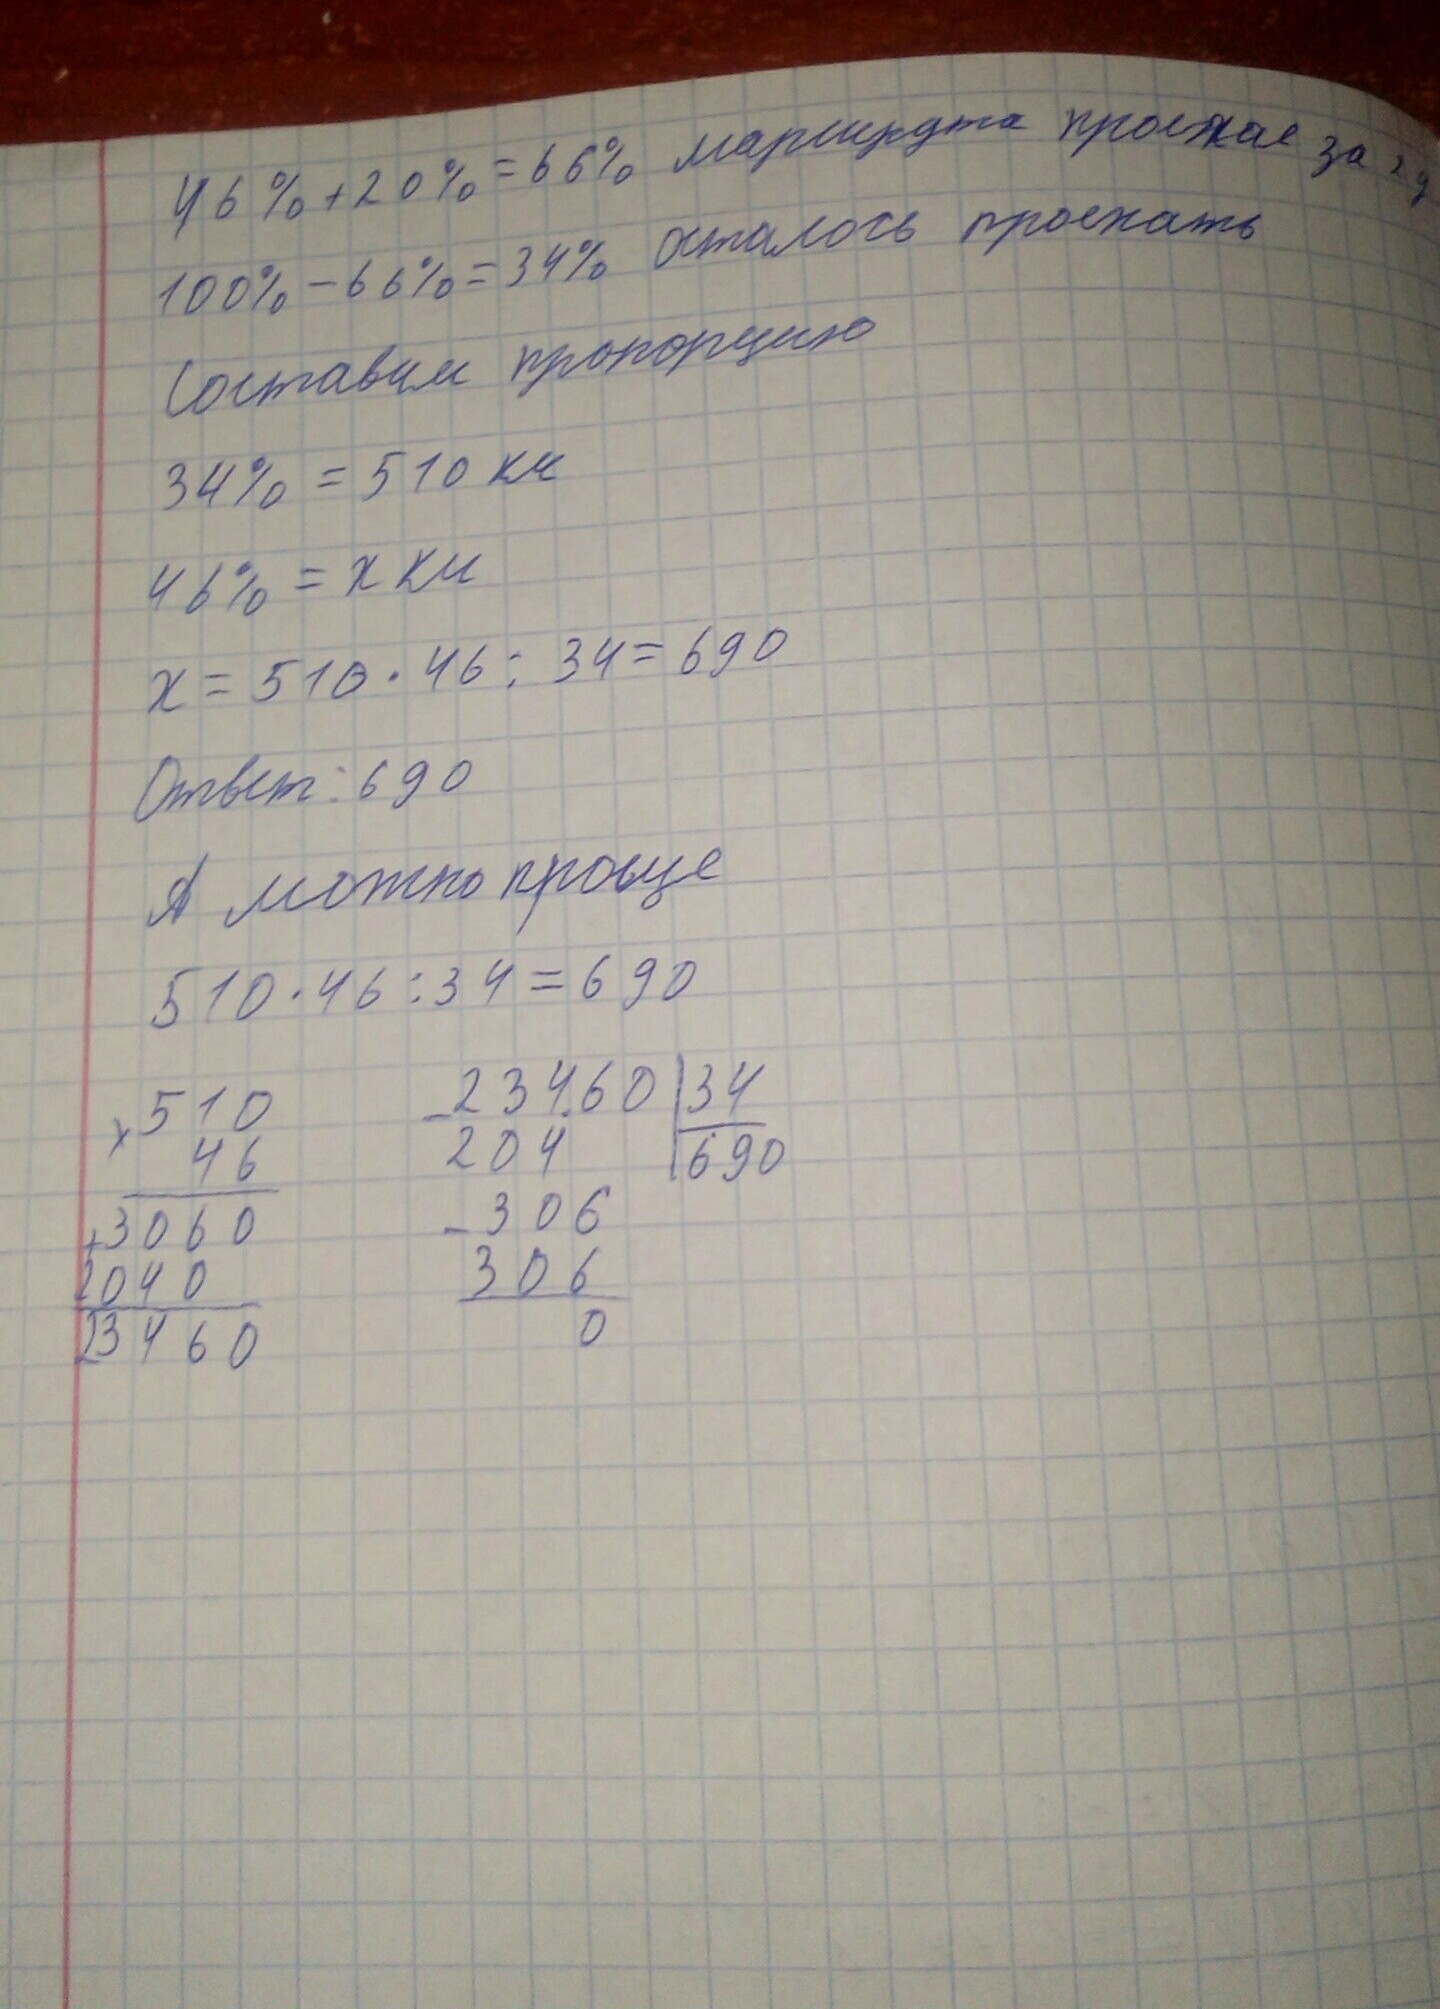 46%+20%=66% маршрута проехал за 2 д
100%-66%=34% осталось проехать
Составим пропорцию
34% = 510 км
46% = х км
х = 510 · 46 : 34 = 690
Ответ: 690
А можно проще
510 · 46 : 34 = 690
× 510
46
+ 3060
2040
23460
- 23460 | 34
204 690
- 306
306
0